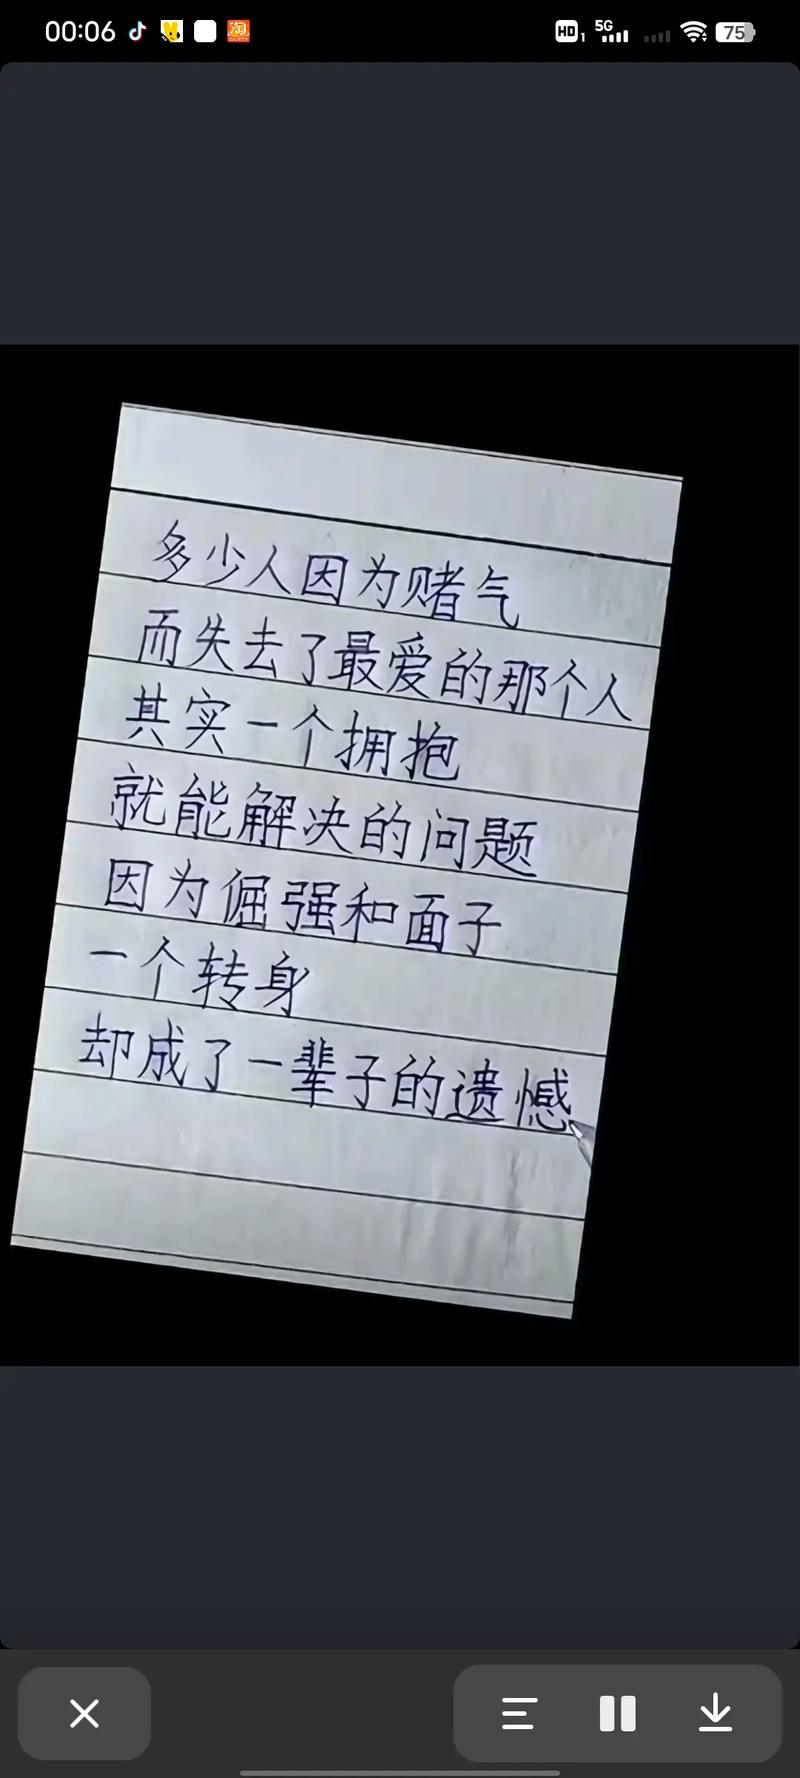 00:06
淘
HD1 5G 75
多少人因为赌气
而失去了最爱的那个人
其实一个拥抱
就能解决的问题
因为倔强和面子
一个转身
却成了一辈子的遗憾